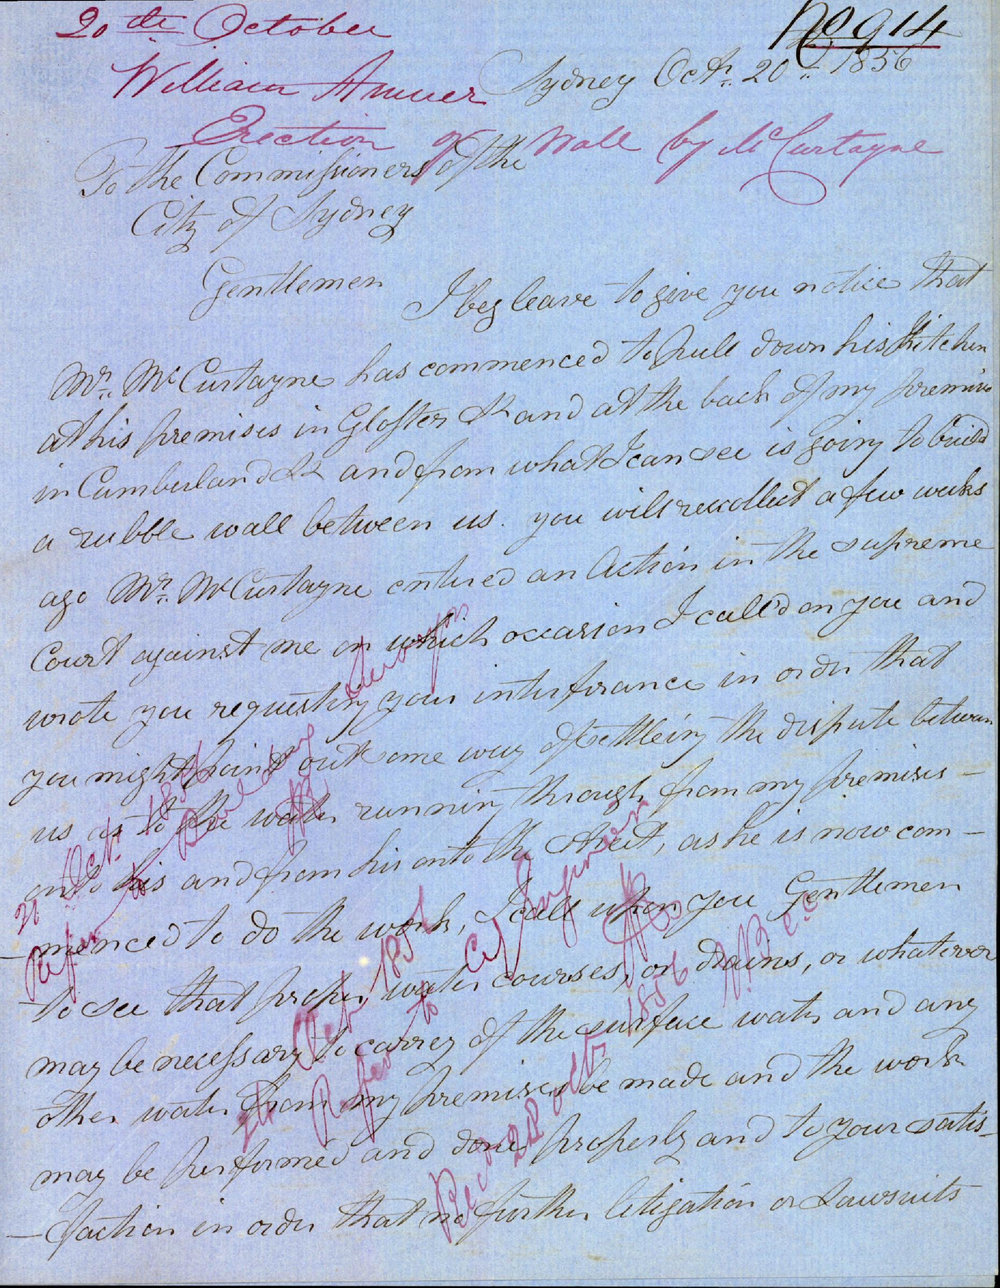 20th October
No 914
William Amuer
Sydney Octr. 20th 1856
Erection of Wall by McCurtayne
To the Commissioners of the
City of Sydney
Gentlemen
I beg leave to give you notice that
Mr. McCurtayne has commenced to pull down his Kitchen
at his premises in Gloster St and at the back of my premises
in Cumberland St and from what I can see is going to build
a rubble wall between us. you will recollect a few weeks
ago Mr. McCurtayne entered an Action in the supreme
Court against me on which occasion I called on you and
wrote you requesting your interfirance in order that
you might point out some way of settleing the dispute between
us as to the water running through from my premises -
onto his and from his onto the Street, as he is now com -
- menced to do the work, I call upon you Gentlemen
to see that proper water courses, or drains, or whatever
may be necessary to carrey of the surface water and any
other water from my premises be made and the work
may be performed and done properly and to your satis -
- faction in order that no further litigation or Lawsuits
21 Oct. 1856
Refer to Building Surveyor
24 Oct 1856
Refer to City Engineer
Recd 28 Octr 1856